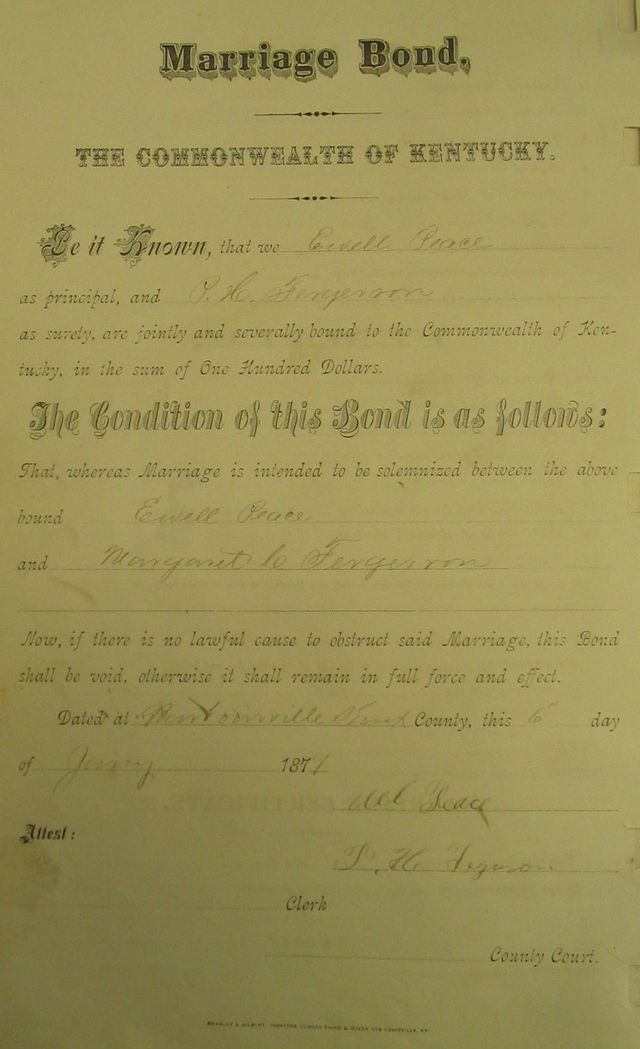 Marriage Bond.
THE COMMONWEALTH OF KENTUCKY.
Be it Known, that we Ewell Peace
as principal, and P. H. Fergerson
as surety, are jointly and severally bound to the Commonwealth of Ken-
tucky, in the sum of One Hundred Dollars.
The Condition of this Bond is as follows:
That, whereas Marriage is intended to be solemnized between the above
bound Ewell Peace
and Margaret C Fergerson
Now, if there is no lawful cause to obstruct said Marriage, this Bond
shall be void, otherwise it shall remain in full force and effect.
Dated at County, this 6" day
of Jany 1871
Peace
Attest:
P. H. Ferguson
Clerk
County Court.